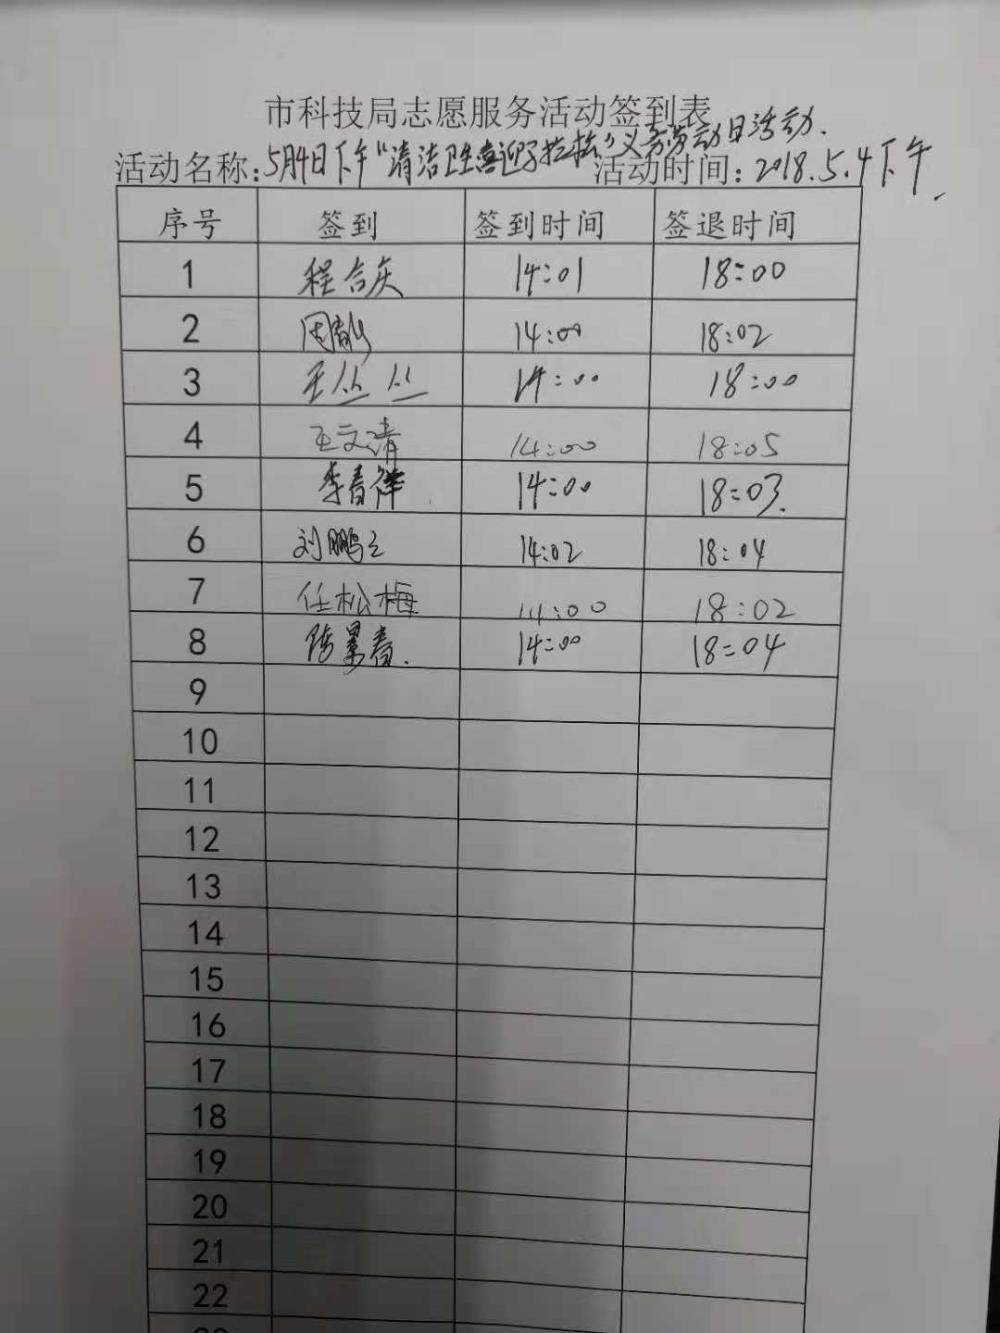 市科技局志愿服务活动签到表
活动名称:5月4日下午“清洁卫生喜迎 ”义务劳动日活动. 活动时间:2018.5.4下午.
序号 签到 签到时间 签退时间
1 程合庆 14:01 18:00
2 周 14:00 18:02
3 王丛丛 14:00 18:00
4 王文清 14:00 18:05
5 李春祥 14:00 18:03.
6 刘鹏之 14:02 18:04
7 任松梅 14:00 18:02
8 陈景春. 14:00 18:04
9
10
11
12
13
14
15
16
17
18
19
20
21
22